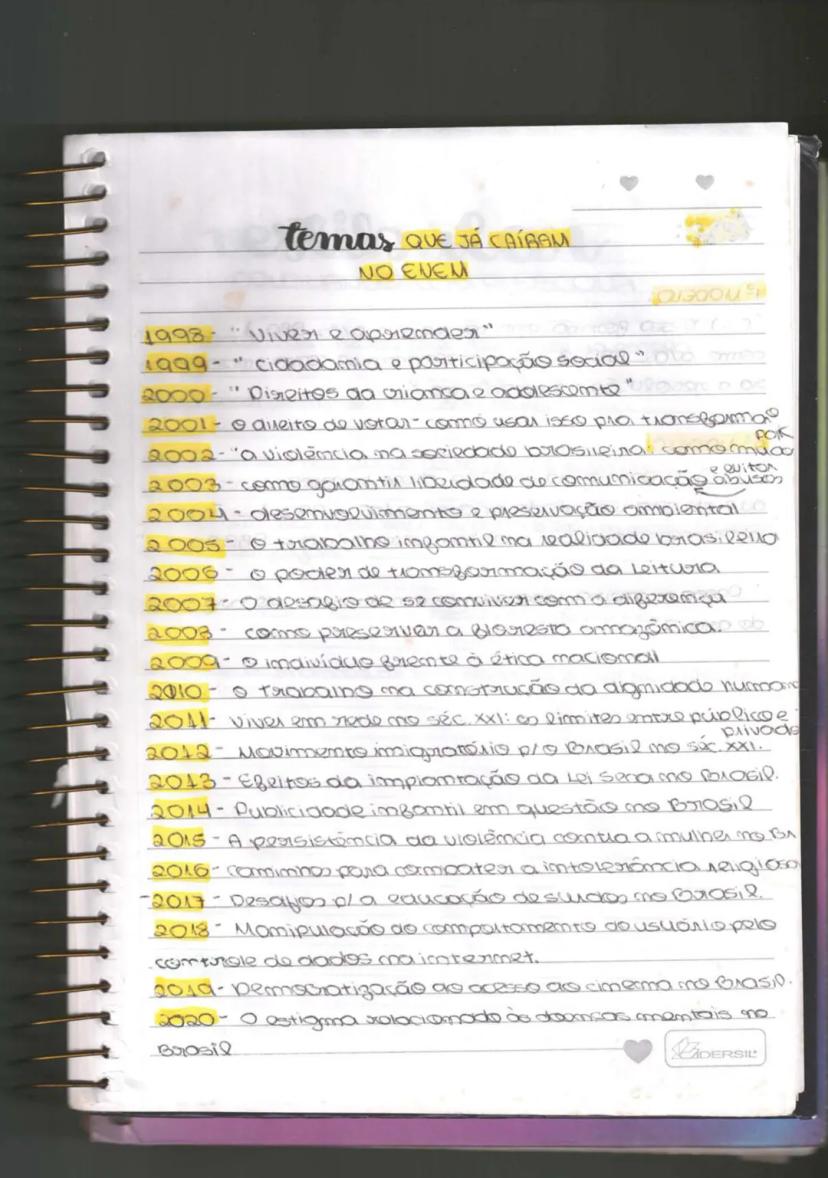 temas QUE JÁ CAÍRAM
NO ENEM
1º MODELO
1998- "Viver e aprender"
1999- "cidadania e participação social"
2000- "Direitos da criança e adolescente"
2001- o direito de votar- como usar isso pra transformaº
2002- "a violência na sociedade brasileira: como muda
POR
2003- como garantir liberdade de comunicação e evitar abusos
2004- desenvolvimento e preservação ambiental
2005- O trabalho infantil na realidade brasileira
2006- O poder de transformação da Leitura
2007- O desafio de se conviver com a diferença
2008- como preservar a floresta amazônica.
2009- o indivíduo frente à ética nacional
2010- o trabalho na construção da dignidade humana
2011- Viver em rede no séc. XXI: os limites entre público e
privado
2012- Movimento imigratório p/o Brasil no séc. XXI.
2013- Efeitos da implantação da Lei seca no Brasil.
2014- Publicidade infantil em questão no Brasil
2015- A persistência da violência contra a mulher no Br
2016- caminhos para combater a intolerância religiosa
-2017- Desafios p/ a educação de surdos no Brasil.
2018- Manipulação do comportamento do usuário pelo
controle de dados na internet.
2019- Democratização do acesso ao cinema no Brasil.
2020- O estigma relacionado às doenças mentais no
Brasil